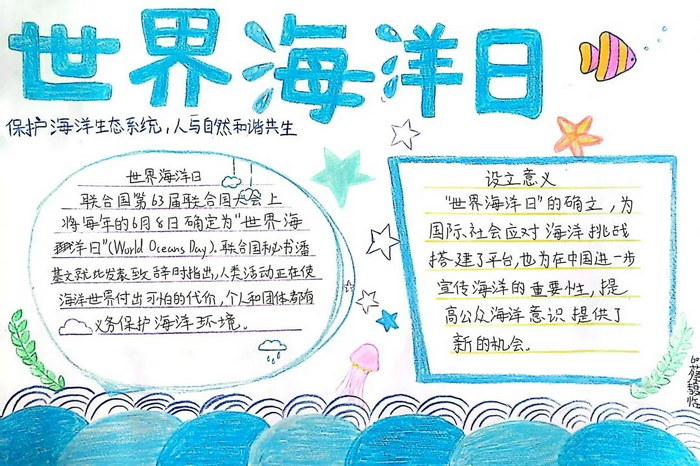 世界海洋日
保护海洋生态系统，人与自然和谐共生
世界海洋日
联合国第63届联合国大会上
将每年的6月8日确定为“世界海
洋日”(World Oceans Day)。联合国秘书潘
基文就此发表致辞时指出，人类活动正在使
海洋世界付出可怕的代价，个人和团体都有
义务保护海洋环境。
设立意义
“世界海洋日”的确立，为
国际社会应对海洋挑战
搭建了平台，也为在中国进一步
宣传海洋的重要性，提
高公众海洋意识提供了
新的机会。